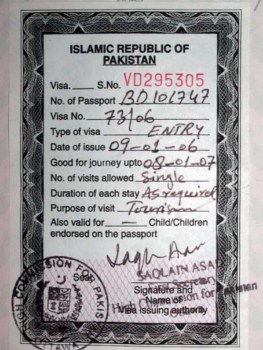 ISLAMIC REPUBLIC OF
PAKISTAN
Visa. S.No. VD295305
No. of Passport BD106747
Visa No. 73/06
Type of visa ENTRY
Date of issue 09-01-06
Good for journey upto 08-01-07
No. of visits allowed Single
Duration of each stay As required
Purpose of visit Tourism
Also valid for — Child/Children
endorsed on the passport
Seal
SAQLAIN ASA
Signature and
Name of
visa issuing authority
High Commission for Pakistan
HIGH COMMISSION FOR PAKISTAN
OTTAWA